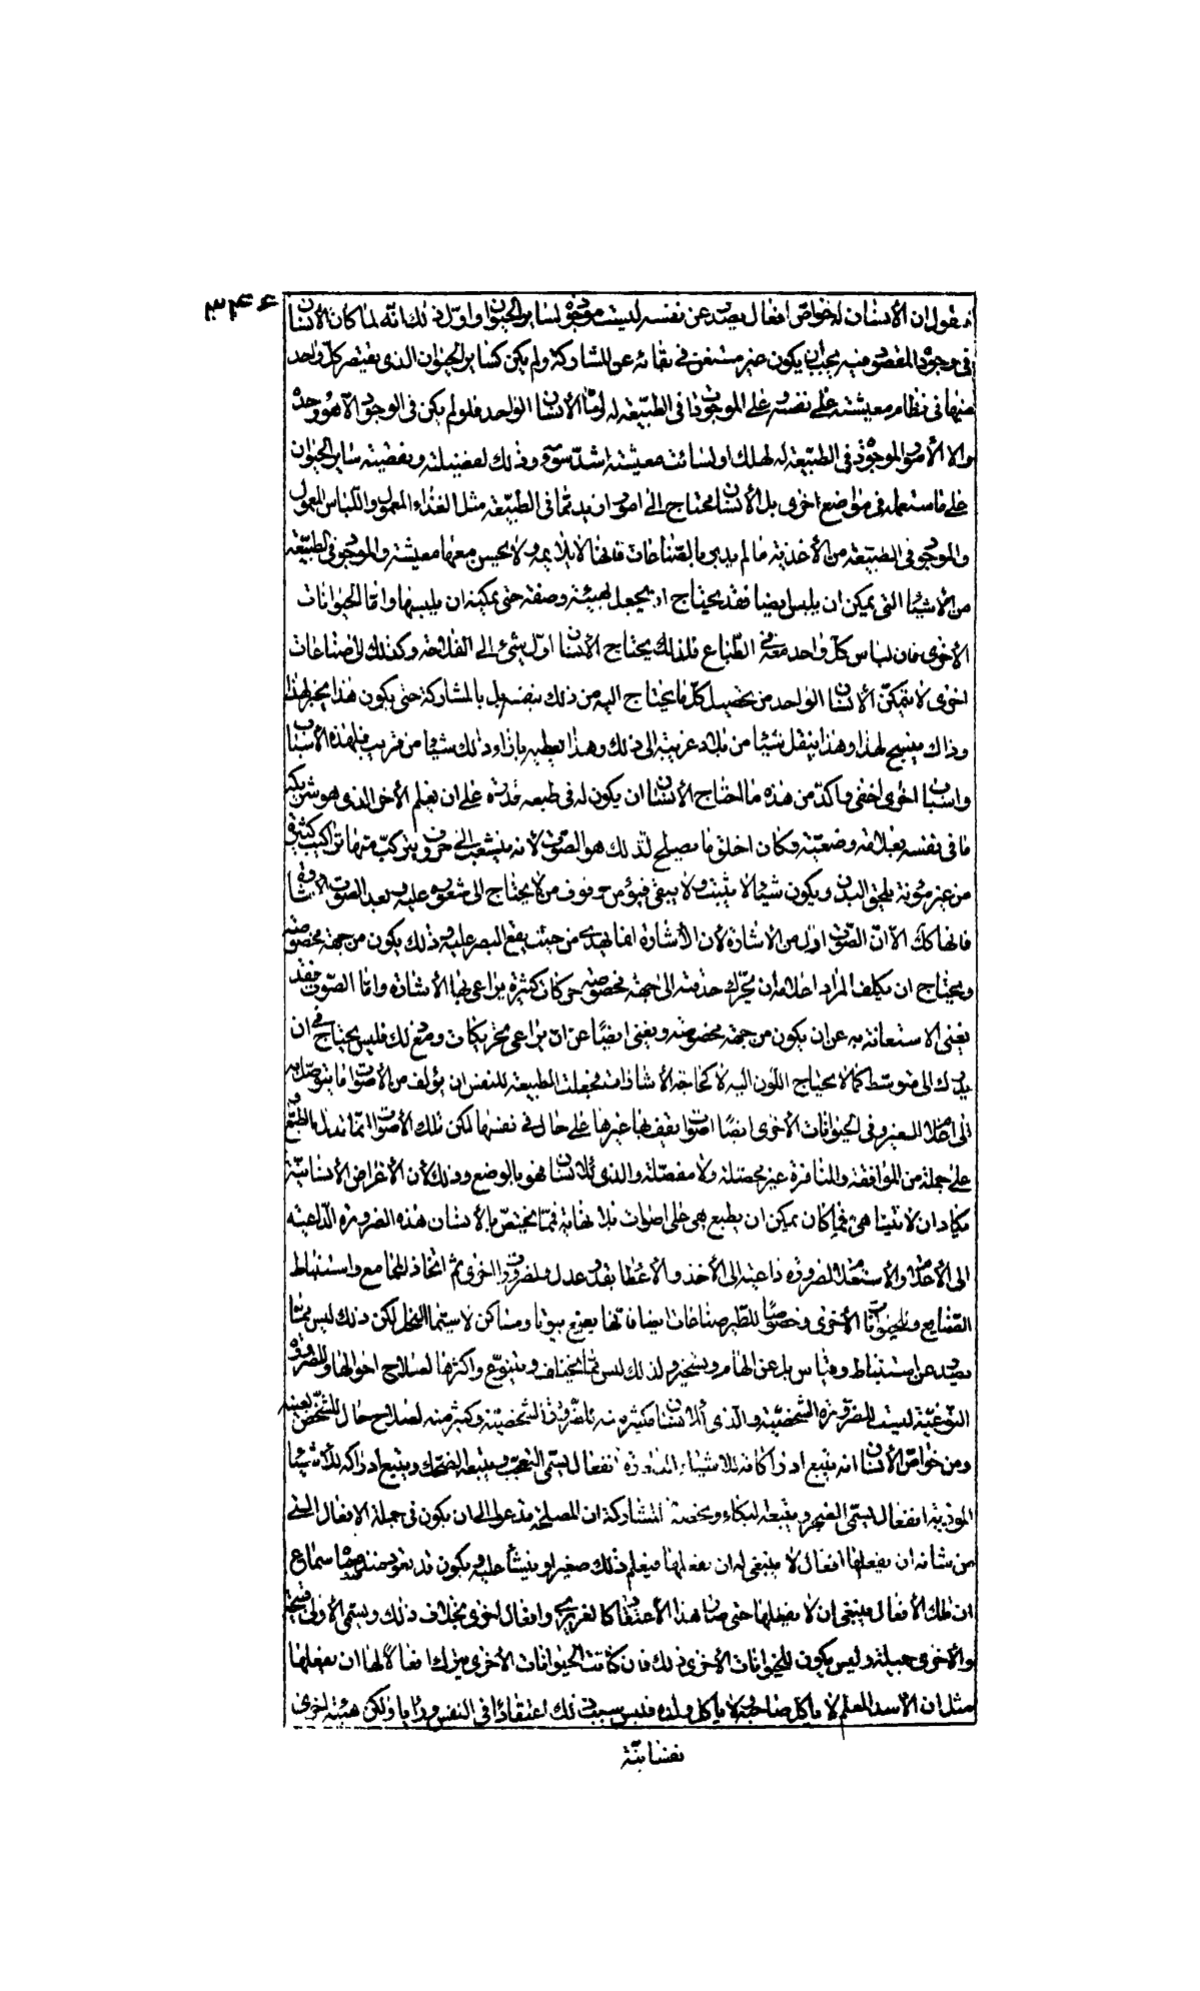 ٣٤٦
فنقول ان الأنسان له خواص افعال يصدر عن نفسه ليست موجودة لساير الحيوان واول ذلك انّه لما كان الأنسان
فى وجوده المقصود فيه يجب ان يكون غير مستغن فى بقائه عن المشاركة ولم يكن كساير الحيوان الذى يقتصر كلّ واحد
منها فى نظام معيشته على نفسه وعلى الموجودات فى الطبيعة له وامّا الأنسان الواحد فلو لم يكن فى الوجود الّا هو وحده
والا الأمور الموجودة فى الطبيعة له لهلك او لسائت معيشته اشدّ سوء وذلك لفضيلته ونقيصة ساير الحيوان
على ما ستعلمه فى مواضع اخرى بل الأنسان محتاج الى امور ازيد ممّا فى الطبيعة مثل الغذاء المعمول واللّباس المعمول
والموجود فى الطبيعة من الأغذية ما لم يدبر بالصّناعات فانها لا يلايمه ولا يحسن معها معيشته والموجود فى الطبيعة
من الأشياء التى يمكن ان يلبس ايضا فقد يحتاج ان يجعل بهيئة وصفة حتى يمكنه ان يلبسها وامّا الحيوانات
الأخرى فان لباس كلّ واحد معه فى الطّباع فلذلك يحتاج الأنسان اوّل شئ الى الفلاحة وكذلك الى صناعات
اخرى لا يتمكّن الأنسان الواحد من تحصيل كلّ ما يحتاج اليه من ذلك بنفسه بل بالمشاركة حتى يكون هذا يخبز لهذا
وذاك ينسج لهذا وهذا ينقل شيئا من بلاد غريبة الى ذلك وهذا يعطيه بازاء ذلك شيئا من قريب فلهذه الأسباب
واسباب اخرى اخفى واكدّ من هذه ما احتاج الأنسان ان يكون له فى طبعه قدرة على ان يعلم الأخر الذى هو شريكه
ما فى نفسه بعلامة وضعيّة وكان اخلق ما يصلح لذلك هو الصّوت لأنه ينشعب الى حروف يتركّب منها تراكيب كثيرة
من غير مؤنة يلحق البدن ويكون شيئا لا يثبت ولا يبقى فيؤمن وقوف من لا يحتاج الى شعوره عليه وبعد الصّوت الاشارة
فانها كك الّا انّ الصّوت ادل من الاشارة لأن الأشارة انما تهدى من حيث يقع البصر عليه وذلك يكون من جهة مخصوصة
ويحتاج ان يكلف المراد اعلامه ان يحرّك حدقته الى جهة مخصوصة حركات كثيرة يراعى بها الأشارة وامّا الصّوت فقد
يغنى الاستعانة به عن ان يكون من جهة مخصوصة ويغنى ايضًا عن ان يراعى بتحريكات ومع ذلك فليس يحتاج فى ان
يدرك الى متوسّط كما لا يحتاج اللّون اليه لا كحاجة الأشارات فجعلت الطبيعة للنفس ان يؤلف من الأصوات ما يتوصل به
الى اعلام الغير وفى الحيوانات الأخرى ايضًا اصوات يقف بها غيرها على حال فى نفسها لكن تلك الأصوات انما تدل بالطبع
على جملة من الموافقة والمنافرة غير محصّلة ولا مفصّلة والذى للأنسان فهو بالوضع وذلك لأن الأغراض الأنسانيّة
يكاد ان لا يتناهى فما كان يمكن ان يطبع هى على اصوات بلا نهاية فممّا يختصّ بالأنسان هذه الضرورة الدّاعية
الى الأعلام والأستعلام لضرورة داعية الى الأخذ والأعطاء بقدر عدل ولضرورات اخرى ثم اتّخاذ المجامع واستنباط
الصّنايع وللحيوانات الأخرى وخصوصًا للطّير صناعات ايضا فانّها يصنع بيوتا ومساكن لا سيّما النّحل لكن ذلك ليس ممّا
يصدر عن استنباط وقياس بل عن الهام وتسخير ولذلك ليس ممّا يختلف ويتنوّع واكثرها لصلاح احوالها وللضرورة
النّوعيّة ليست للضرورة الشخصيّة والّذى للأنسان فكثير منه للضرورة الشخصيّة وكثير منه لصلاح حال الشّخص بعينه
ومن خواصّ الأنسان انه يتبع ادراكاته للأشياء النّادرة انفعال يسمّى التعجّب ويتبعه الضحك ويتبع ادراكه للأشياء
الموذية انفعال يسمّى الضجر ويتبعه البكاء ويخصّه فى المشاركة ان المصلحة تدعو الى ان يكون فى جملة الافعال التى
من شانه ان يفعلها افعال لا ينبغى له ان يفعلها فيعلم ذلك صغيرا وينشأ عليه ويكون قد تعود منذ صباه سماع
ان تلك الأفعال ينبغى ان لا يفعلها حتى صار هذا الأعتقاد له كالغريزى وافعال اخرى بخلاف ذلك ويسمّى الأولى قبيحة
والأخرى جميلة وليس يكون للحيوانات الأخرى ذلك فان كانت الحيوانات الأخرى يترك افعالًا لها ان يفعلها
مثل ان الأسد المعلم لا ياكل صاحبه ولا ياكل ولده فليس سبب ذلك اعتقادًا فى النفس ورأيا ولكن هيئة اخرى
نفسانيّة